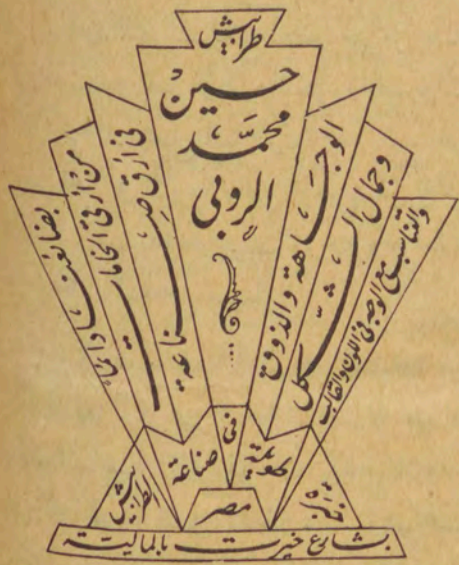 طرابيش
حسين
محمَّد
الروبى
الوجاهة والذوق
وجمال الشكل
والتناسب مع الوجه فى اللون والقالب
فى ارقى صناعة
من ارقى الخامات
بضائعنا
فى
صناعة
الطرابيش
مصر
بشارع خيرت بالمالية